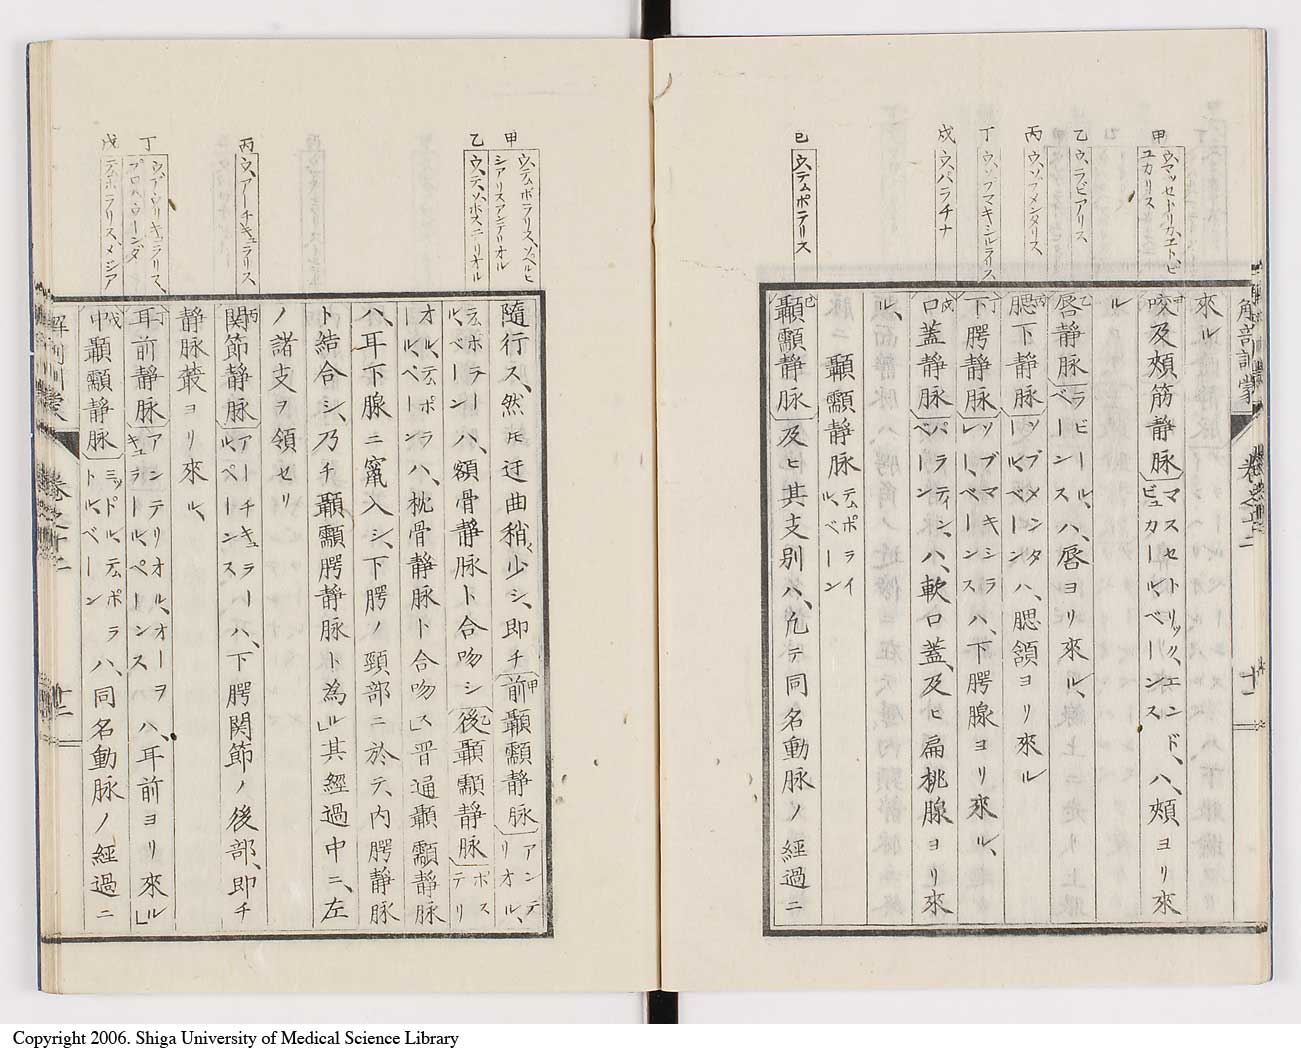 甲
ウ、マッセトリカ、エト、ビ
ユカリス
乙
ウ、ラビアリス
丙
ウ、ソブメンタリス、
丁
ウ、ソブマキシルラリス
戊
ウ、パラチナ
巳
ウ、テムポラリス
來ル
甲咬及頰筋静脉マスセトリック、エンド、ビュカール、ベーンスハ、頰ヨリ來
ル
乙唇静脉ラビール、ベーンスハ、唇ヨリ來ル、
丙腮下静脉ソブメンタール、ベーンハ、腮頷ヨリ來ル
丁下腭静脉ソブマキシラレー、ベーンスハ、下腭腺ヨリ來ル、
戊口蓋静脉パラティン、ベーンハ、軟口蓋、及ヒ扁桃腺ヨリ來
ル、
顳顬静脉テムポライル、ベーン
巳顳顬静脉及ヒ其支別ハ、凢テ同名動脉ノ經過ニ
解剖訓蒙
卷之十二
十一
甲
ウ、テムポラリス、ソペルヒ
シアリスアンテリオル
乙
ウ、テ、ソ、ポスニリオル
丙
ウ、アーチキュラリス、
丁
ウ、アウリキュラリス、
プロハウーンダ
戊
テムポラリス、メジア
隨行ス、然ㇳモ迂曲稍少シ、即チ甲前顳顬静脉アンテリオル、
テムポラール、ベーンハ、額骨静脉ト合吻シ乙後顳顬静脉ポステリ
オル、テムポラル、ベーンハ、枕骨静脉ト合吻ス」晋通顳顬静脉
ハ、耳下腺ニ竄入シ、下腭ノ頸部ニ於テ、内腭静脉
ト結合シ、乃チ顳顬腭静脉ト為ル」其經過中ニ、左
ノ諸支ヲ領セリ
丙関節静脉アーチキュラール、ベーンスハ、下腭関節ノ後部、即チ
静脉叢ヨリ來ル、
丁耳前静脉アンテリオル、オーヲキュラール、ベーンスハ、耳前ヨリ來ル」
戊中顳顬静脉ミッドル、テムポラトル、ベーンハ、同名動脉ノ經過ニ
解剖訓蒙
卷之十二
十二
Copyright 2006. Shiga University of Medical Science Library